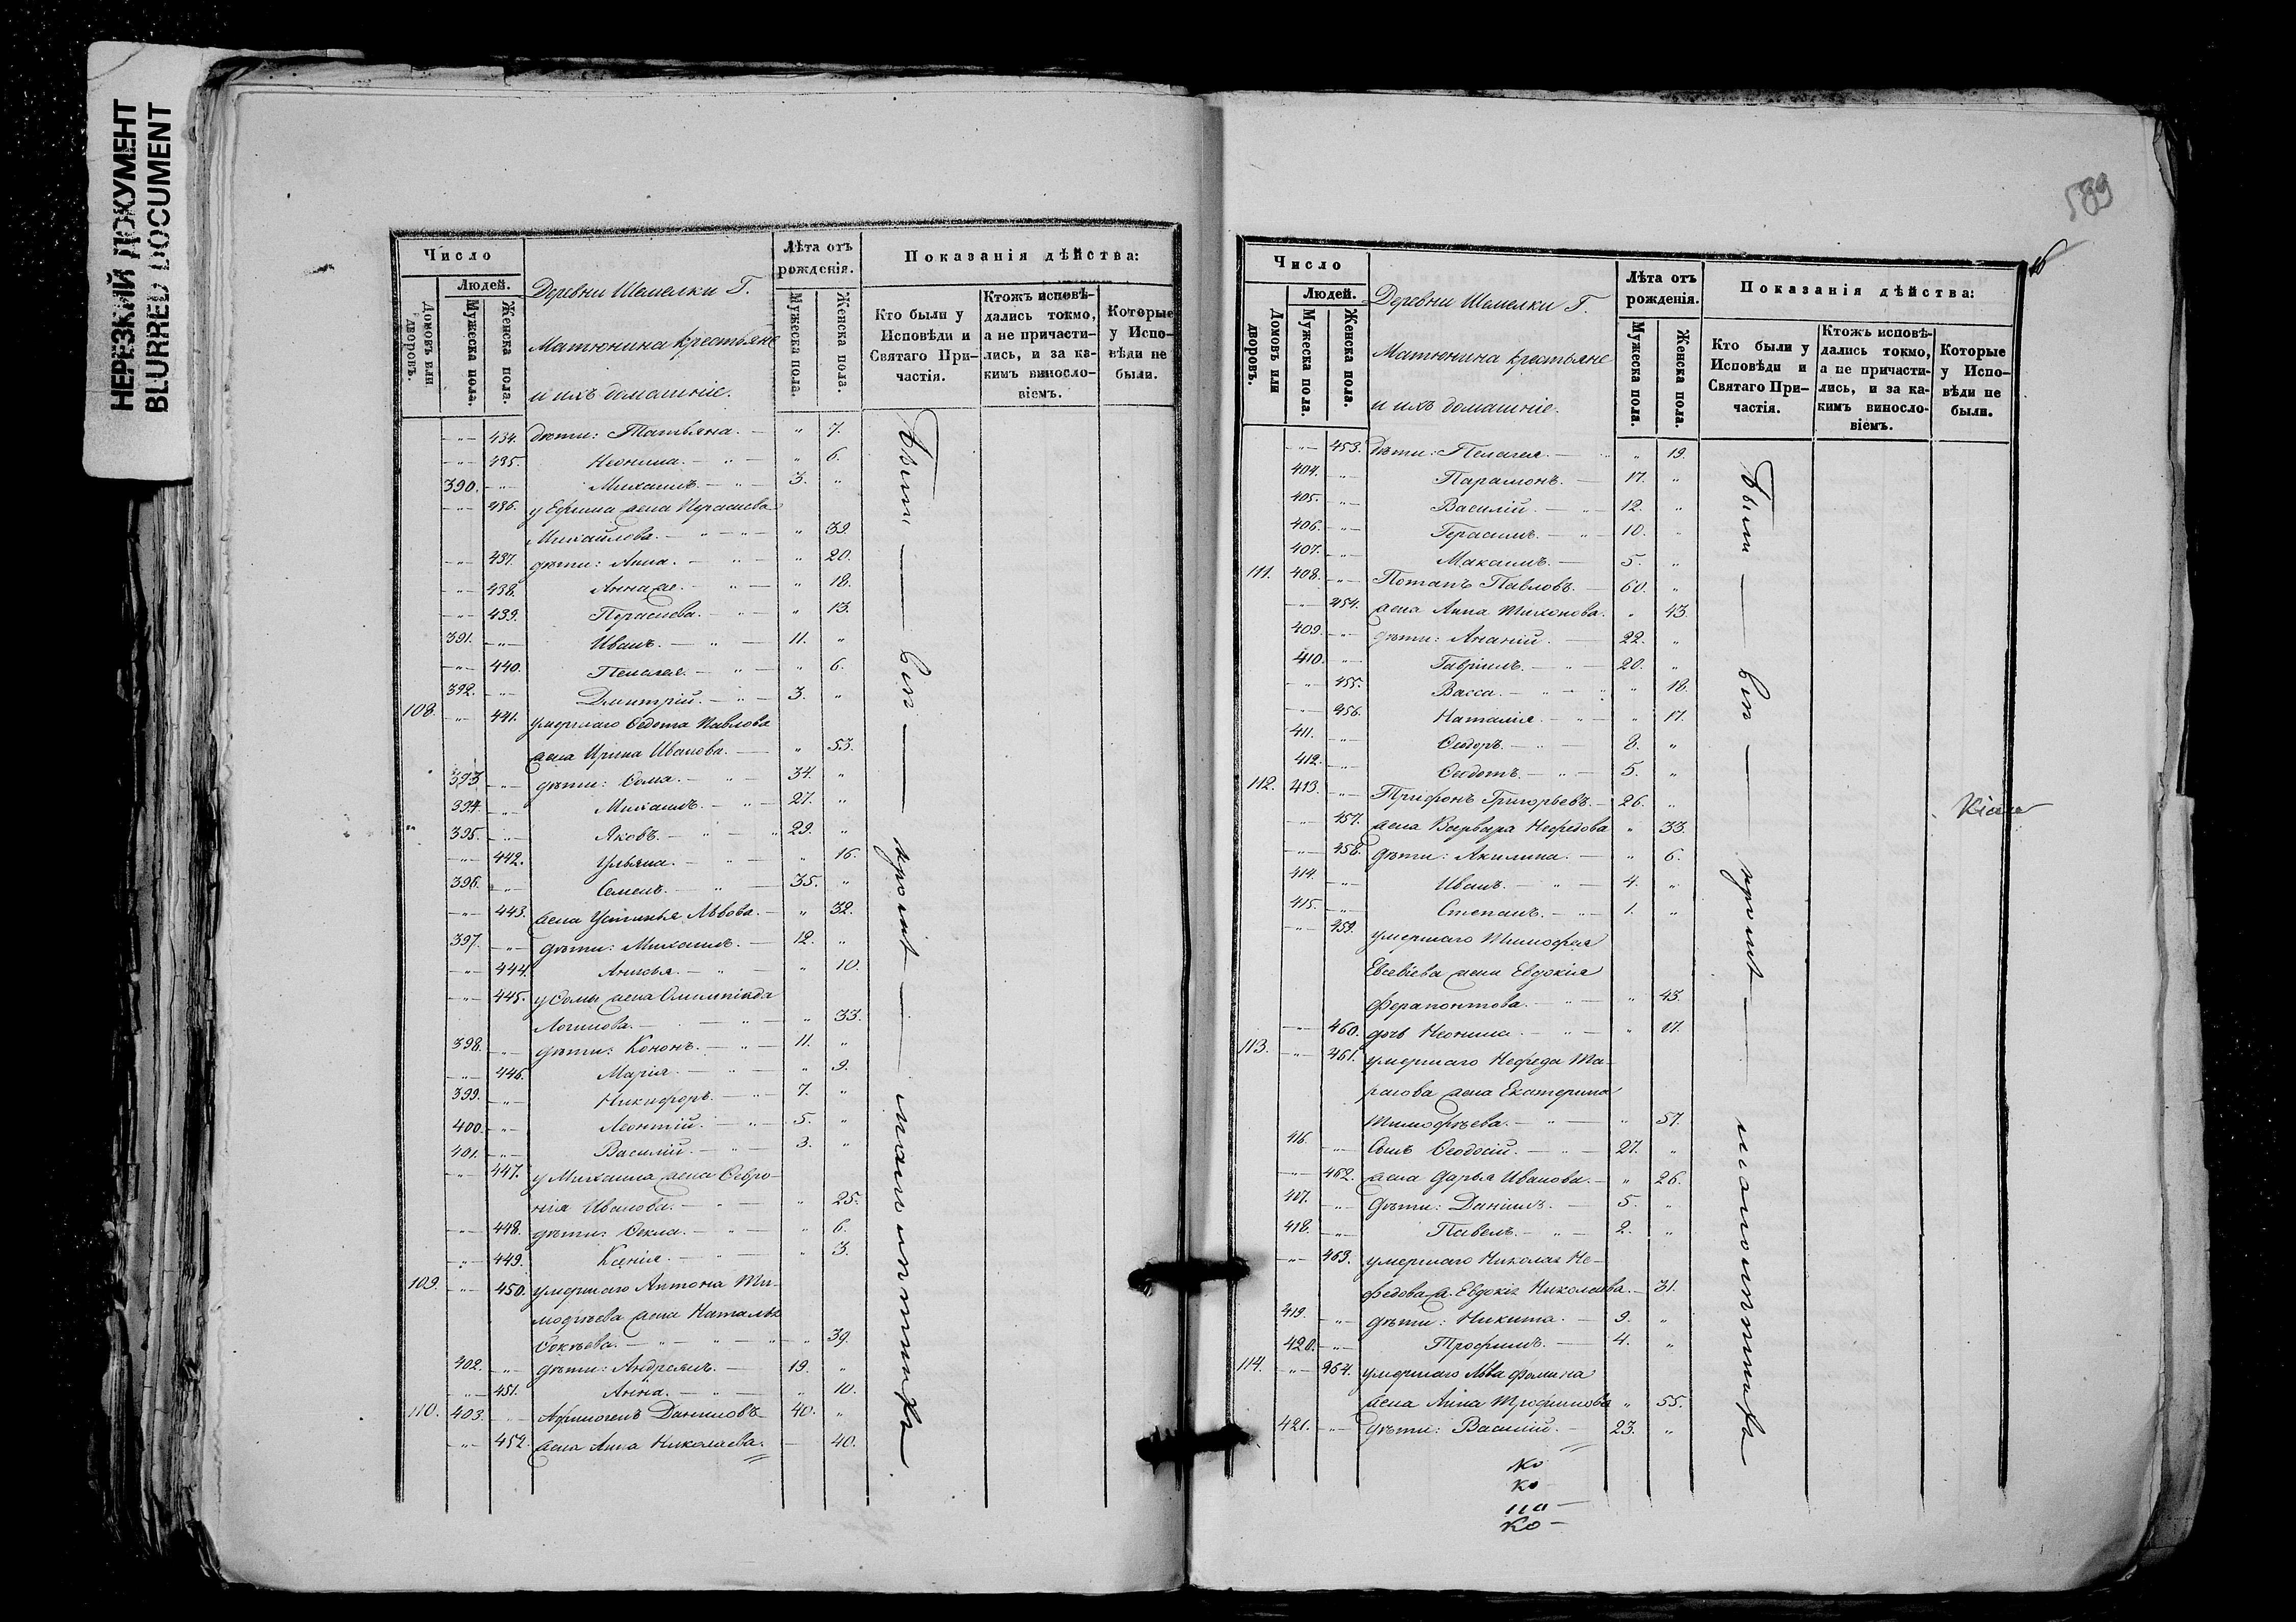 НЕРЕЗКИЙ ДОКУМЕНТ
BLURRED DOCUMENT
Число
Людей.
Домовъ или дворовъ.
Мужеска пола.
Женска пола.
Деревни Шемелки Г.
Матюнина крестьяне
и ихъ домашніе.
Лѣта отъ рожденія.
Мужеска пола.
Женска пола.
Показанія дѣйства:
Кто были у Исповѣди и Святаго Причастія.
Ктожъ исповѣдались токмо, а не причастились, и за какимъ винословіемъ.
Которые у Исповѣди не были.
434. дѣти: Татьяна. — " 7.
435. Неонила. — " — " 6.
390. Михаилъ. — " — 3. "
436. у Ефима жена Парасковья
Михайлова. — " — " 39.
437. дѣти: Анна. — " 20.
438. " 18.
439. — " 13.
391. Иванъ. — " — 11. "
440. Пелагея. — " — " 6.
392. Дмитрій. — " — 3. "
108. 441. умершаго Ѳедота Павлова
жена Ирина Иванова. — " 53.
393. дѣти: Ѳома. — 34. "
394. Михаилъ. — " — 27. "
395. Яковъ. — " — 29. "
442. Ульяна. — " 16.
396. Семенъ. — " — 35. "
443. жена Устинья Львова. — " 32.
397. дѣти: Михаилъ. — 12. "
444. — " 10.
445. у Ѳомы жена Олимпіада
Логинова. — " — " 33.
398. дѣти: Кононъ. — " — 11. "
446. Марія. — " — " 9.
399. Никифоръ. — " — 7. "
400. Леонтій. — " — 5. "
401. Василій. — " 3. "
447. у Михаила жена Ѳевро-
нія Иванова. — " — " 25.
448. дѣти: Ѳекла. — " — " 6.
449. Ксенія. — " — " 3.
109. 450. умершаго Антона Ти-
моѳѣева жена Наталья
— " 39.
402. дѣти: Андреянъ. — 19. "
451. Анна. — " — " 10.
110. 403. Аѳиногенъ Даниловъ — 40. "
452. жена Анна Николаева. — 40.
Были — вси — кромѣ — малолѣтнихъ
589
Число
Людей.
Домовъ или дворовъ.
Мужеска пола.
Женска пола.
Деревни Шемелки Г.
Матюнина крестьяне
и ихъ домашніе.
Лѣта отъ рожденія.
Мужеска пола.
Женска пола.
Показанія дѣйства:
Кто были у Исповѣди и Святаго Причастія.
Ктожъ исповѣдались токмо, а не причастились, и за какимъ винословіемъ.
Которые у Исповѣди не были.
453. Дѣти: Пелагея. — " 19.
404. Парамонъ. — 17. "
405. Василій. — " — 12. "
406. Герасимъ. — " — 10. "
407. Максимъ. — 5. "
111. 408. Потапъ Павловъ. — 60. "
454. жена Анна Тихонова. " 43.
409. дѣти: Ананій. — 22. "
410. Гавріилъ. — " — 20. "
455. Васса. — " — " 18.
456. Наталія. — " — " 17.
411. Ѳедоръ. — " — 8. "
412. Ѳедотъ. — " — 5. "
112. 413. Трифонъ Григорьевъ. — 26. "
457. жена Варвара Нефедова " 33.
458. дѣти: Акилина. — " 6.
414. Иванъ. — " — 4. "
415. Степанъ. — " — 1. "
459. умершаго Тимофея
Евсевіева жена Евдокія
Ферапонтова. — " — " 43.
460. дочь Неонила. — " — " 17.
113. 461. умершаго Нефеда Та-
расова жена Екатерина
Тимофѣева. — " — " 57.
416. Сынъ Ѳеодосій. — " — 27. "
462. жена Дарья Иванова. — " 26.
417. Дѣти: Даніилъ. — 5. "
418. Павелъ. — " — 2. "
463. умершаго Николая Не-
федова ж. Евдокія Николаева. — 31.
419. дѣти: Никита. — 9. "
420. Трофимъ. — 4. "
114. 464. умершаго Льва Фомина
жена Анна Трофимова " 55.
421. дѣти: Василій. — 23. "
Были — вси — кромѣ — малолѣтнихъ